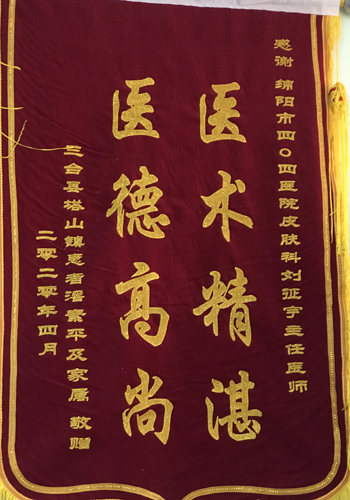 感谢 绵阳市四〇四医院皮肤科刘征宇主任医师
医术精湛
医德高尚
三台县塔山镇患者 家平及家属 敬赠
二零二零年四月